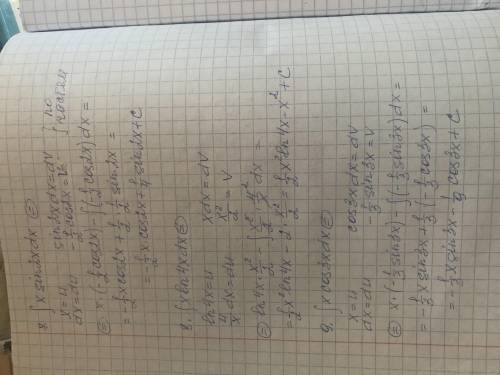 8. ∫ x sin2x dx ⊜
x = u    sin2x dx = dv    } по
dx = du    -1/2 cos2x = v    } частям
⊜ x·(-1/2 cos2x) - ∫(-1/2 cos2x)dx =
= -1/2 x cos2x + 1/2 · 1/2 sin2x =
= -1/2 x cos2x + 1/4 sin2x + C
8. ∫ x ln4x dx ⊜
ln4x = u    x dx = dv
4/x dx = du    x²/2 = v
⊜ ln4x · x²/2 - ∫ x²/2 · 4/x dx =
= 1/2 x² ln4x - 2 · x²/2 = 1/2 x² ln4x - x² + C
9. ∫ x cos3x dx ⊜
x = u    cos3x dx = dv
dx = du    -1/3 sin3x = v
⊜ x·(-1/3 sin3x) - ∫(-1/3 sin3x)dx =
= -1/3 x sin3x + 1/3 (-1/3 cos3x) =
= -1/3 x sin3x - 1/9 cos3x + C